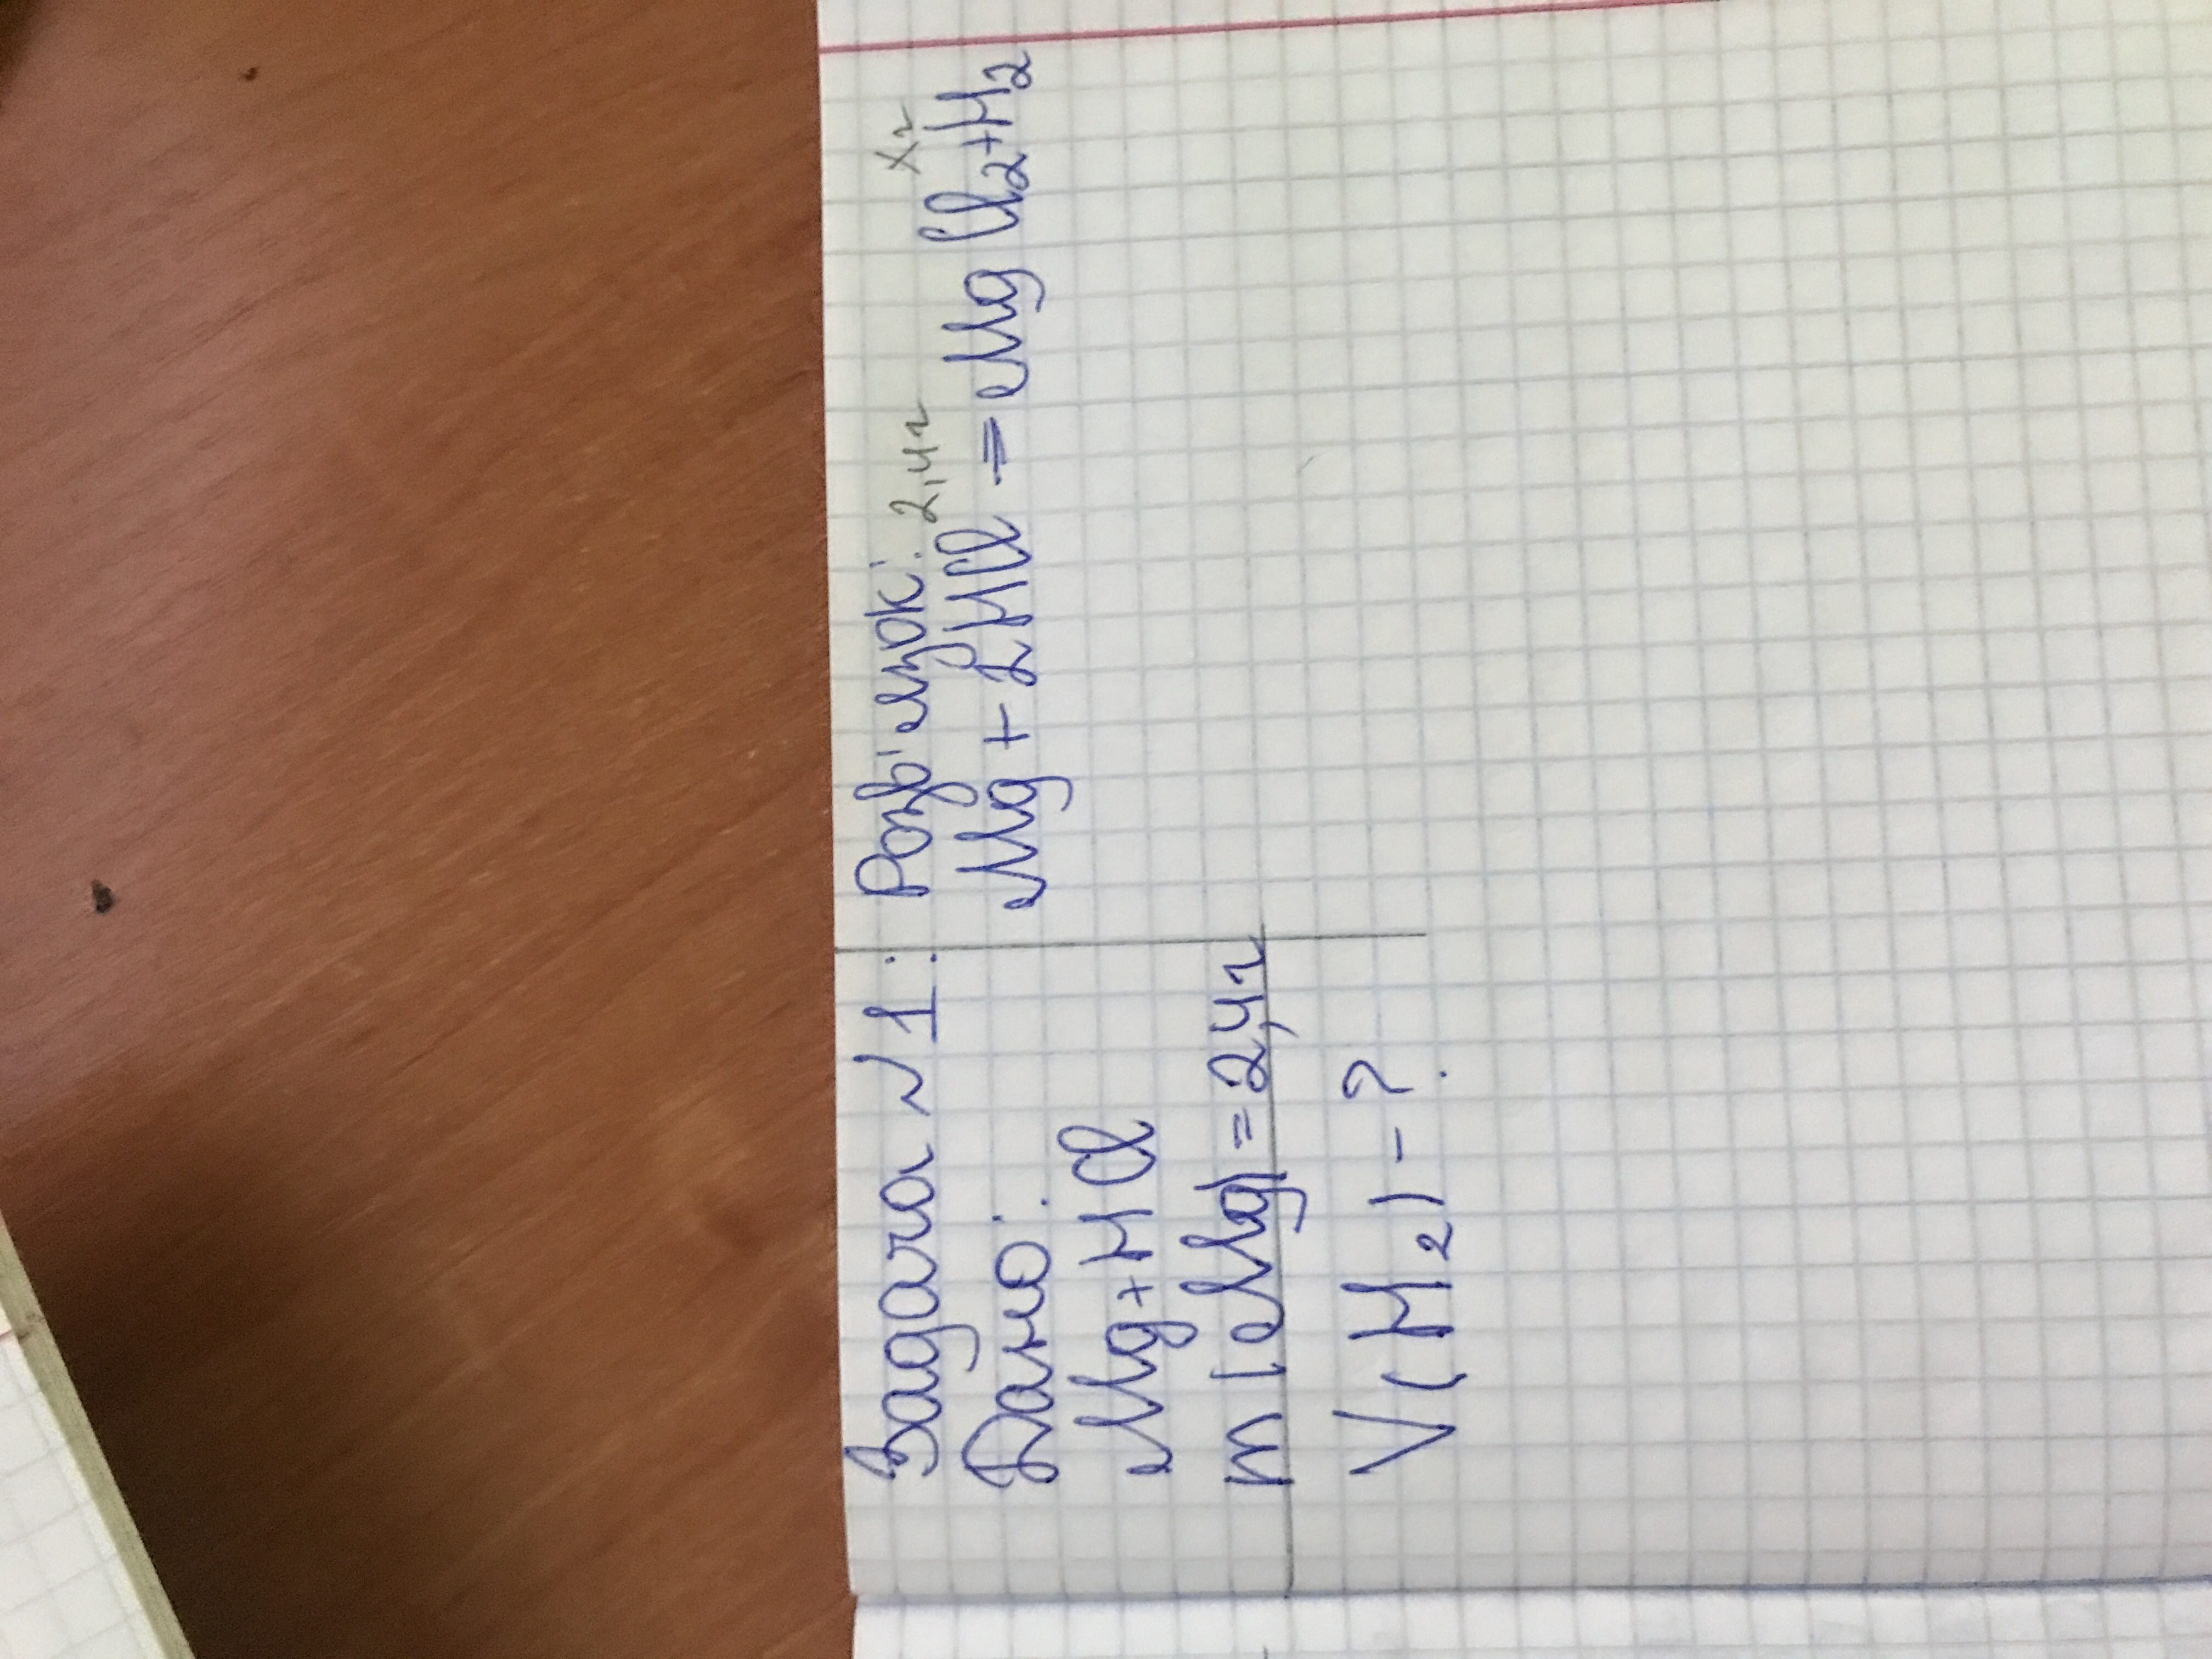 Задача № 1:
Дано:
Mg + HCl
m (Mg) = 2,4г
V (H₂) - ?
Розв'язок:
2,4г хг
Mg + 2HCl = MgCl₂ + H₂